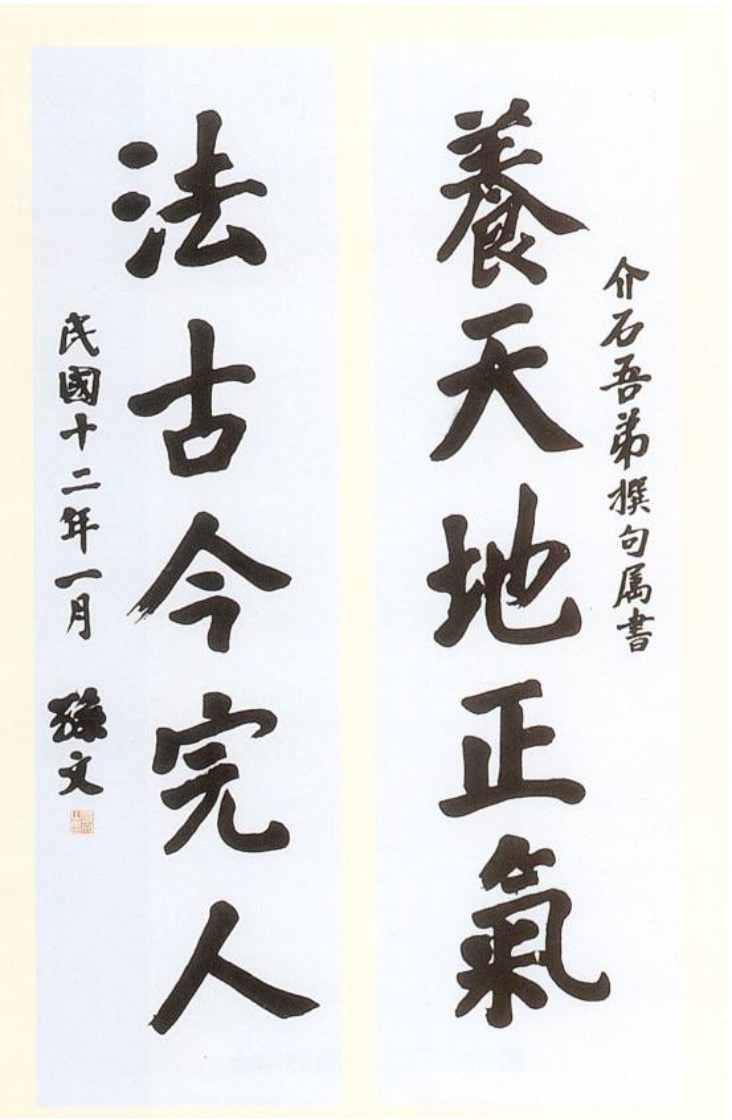 介石吾弟撰句属書
養天地正氣
法古今完人
民國十二年一月 孫文